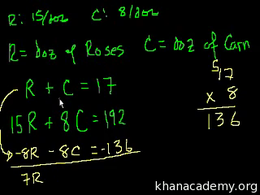 R: 15/doz C: 8/doz
R = doz of Roses C = doz of Carn
R + C = 17
15R + 8C = 192
-8R - 8C = -136
7R
5
17
x 8
136
khanacademy.org